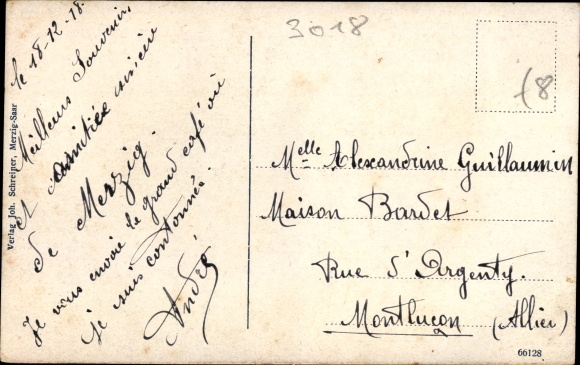 le 18-12-18.
Meilleurs Souvenirs
et amitiée sincère
de Merzig.
Je vous envoie le grand café où
je suis cantonnés.
André
3018
(8
Melle Alexandrine Guillaumin
Maison Bardet
Rue d'Argenty.
Montluçon (Allier)
Verlag Joh. Schreiner, Merzig-Saar
66128